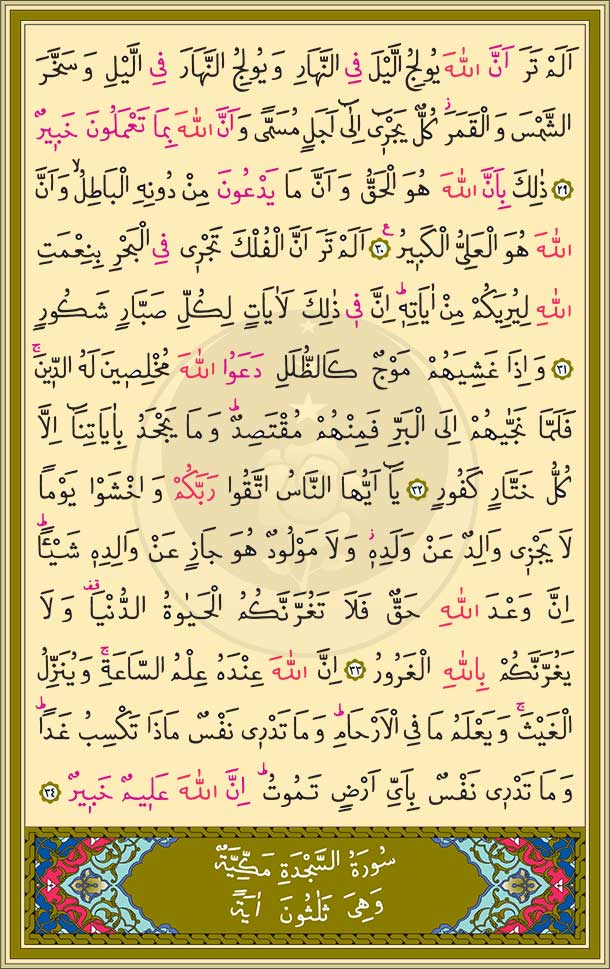 اَلَمْ تَرَ اَنَّ اللّٰهَ يُولِجُ الَّيْلَ فِي النَّهَارِ وَيُولِجُ النَّهَارَ فِي الَّيْلِ وَسَخَّرَ
الشَّمْسَ وَالْقَمَرَۘ كُلٌّ يَجْر۪ٓي اِلٰٓى اَجَلٍ مُسَمًّى وَاَنَّ اللّٰهَ بِمَا تَعْمَلُونَ خَب۪يرٌ
﴿٢٩﴾ ذٰلِكَ بِاَنَّ اللّٰهَ هُوَ الْحَقُّ وَاَنَّ مَا يَدْعُونَ مِنْ دُونِهِ الْبَاطِلُۙ وَاَنَّ
اللّٰهَ هُوَ الْعَلِيُّ الْكَب۪يرُ۟ ﴿٣٠﴾ اَلَمْ تَرَ اَنَّ الْفُلْكَ تَجْر۪ي فِي الْبَحْرِ بِنِعْمَتِ
اللّٰهِ لِيُرِيَكُمْ مِنْ اٰيَاتِه۪ۜ اِنَّ ف۪ي ذٰلِكَ لَاٰيَاتٍ لِكُلِّ صَبَّارٍ شَكُورٍ
﴿٣١﴾ وَاِذَا غَشِيَهُمْ مَوْجٌ كَالظُّلَلِ دَعَوُا اللّٰهَ مُخْلِص۪ينَ لَهُ الدّ۪ينَۚ
فَلَمَّا نَجّٰيهُمْ اِلَى الْبَرِّ فَمِنْهُمْ مُقْتَصِدٌۜ وَمَا يَجْحَدُ بِاٰيَاتِنَٓا اِلَّا
كُلُّ خَتَّارٍ كَفُورٍ ﴿٣٢﴾ يَٓا اَيُّهَا النَّاسُ اتَّقُوا رَبَّكُمْ وَاخْشَوْا يَوْماً
لَا يَجْز۪ي وَالِدٌ عَنْ وَلَدِه۪ۘ وَلَا مَوْلُودٌ هُوَ جَازٍ عَنْ وَالِدِه۪ شَيْـٔاًۜ
اِنَّ وَعْدَ اللّٰهِ حَقٌّ فَلَا تَغُرَّنَّكُمُ الْحَيٰوةُ الدُّنْيَا۠ وَلَا
يَغُرَّنَّكُمْ بِاللّٰهِ الْغَرُورُ ﴿٣٣﴾ اِنَّ اللّٰهَ عِنْدَهُ عِلْمُ السَّاعَةِۚ وَيُنَزِّلُ
الْغَيْثَۚ وَيَعْلَمُ مَا فِي الْاَرْحَامِۜ وَمَا تَدْر۪ي نَفْسٌ مَاذَا تَكْسِبُ غَداًۜ
وَمَا تَدْر۪ي نَفْسٌ بِاَيِّ اَرْضٍ تَمُوتُۜ اِنَّ اللّٰهَ عَل۪يمٌ خَب۪يرٌ ﴿٣٤﴾
سُورَةُ السَّجْدَةِ مَكِّيَّةٌ
وَهِيَ ثَلٰثُونَ اٰيَةً